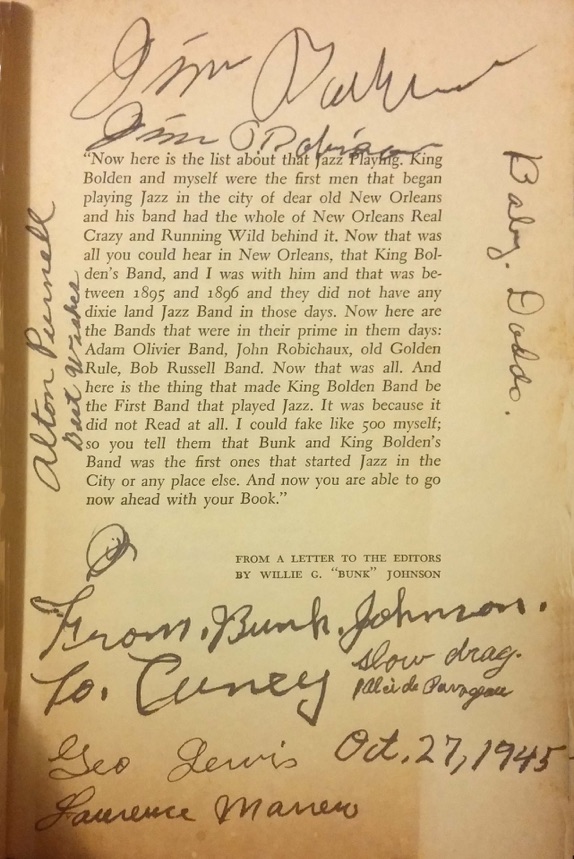 Jim
Jim Robinson
"Now here is the list about that Jazz Playing. King
Bolden and myself were the first men that began
playing Jazz in the city of dear old New Orleans
and his band had the whole of New Orleans Real
Crazy and Running Wild behind it. Now that was
all you could hear in New Orleans, that King Bol-
den's Band, and I was with him and that was be-
tween 1895 and 1896 and they did not have any
dixie land Jazz Band in those days. Now here are
the Bands that were in their prime in them days:
Adam Olivier Band, John Robichaux, old Golden
Rule, Bob Russell Band. Now that was all. And
here is the thing that made King Bolden Band be
the First Band that played Jazz. It was because it
did not Read at all. I could fake like 500 myself;
so you tell them that Bunk and King Bolden's
Band was the first ones that started Jazz in the
City or any place else. And now you are able to go
now ahead with your Book."
Alton Purnell
Best Wishes
Baby. Dodds.
FROM A LETTER TO THE EDITORS
BY WILLIE G. "BUNK" JOHNSON
From. Bunk. Johnson.
To. Cuney
slow drag.
Alcide Pavageau
Geo Lewis Oct. 27, 1945
Laurence Marrero